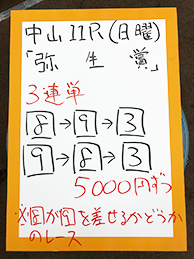 中山11R(日曜)
「弥生賞」
3連単
8→9→3
9→8→3
5000円ずつ
が を差せるかどうか
のレース